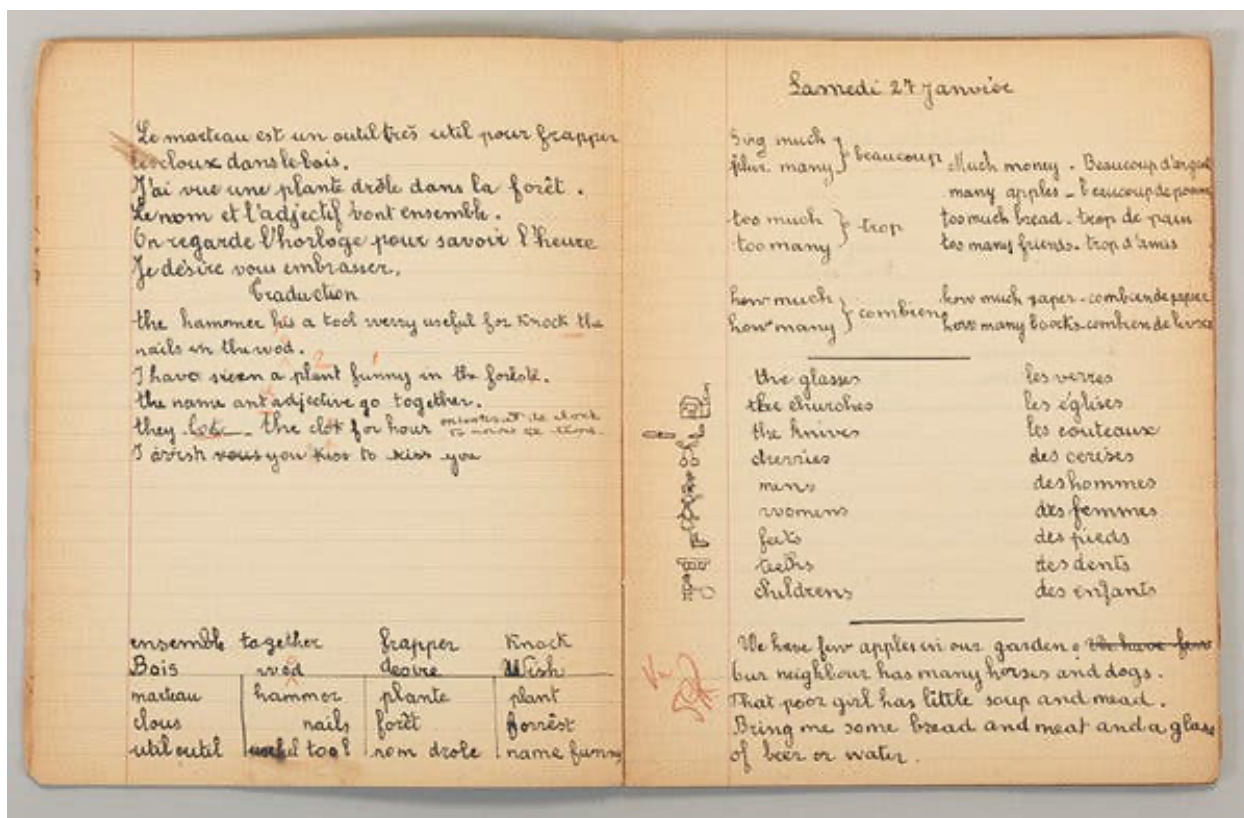 Le marteau est un outil très util pour frapper
les cloux dans le bois.
J'ai vue une plante drôle dans la forêt.
Le nom et l'adjectif vont ensemble.
On regarde l'horloge pour savoir l'heure
Je désire vous embrasser.
Traduction
the hammer his a tool verry useful for Knock the
nails in the wod.
I have seen a plant funny in the foreste.
the name ant adjective go together.
they the clok for hour
I wish vous you kiss to kiss you
ensemble together frapper Knock
Bois wod desire Wish
marteau hammer plante plant
clous nails forêt forrest
util outil useful tool nom drole name funny
Samedi 27 Janvier
Sing much
plur. many } beaucoup Much money - Beaucoup d'argent
many apples - beaucoup de pomme
too much } trop too much bread - trop de pain
too many too many friends - trop d'amis
how much } combien how much paper - combien de papier
how many how many boocks - combien de livre
the glasses les verres
the churches les églises
the knives les couteaux
cherries des cerises
mens des hommes
womens des femmes
feets des pieds
teeths des dents
childrens des enfants
We have few apples in our garden. We have few
bur neighbour has many horses and dogs.
That poor girl has little soup and mead.
Bring me some bread and meat and a glass
of beer or water.
Vu